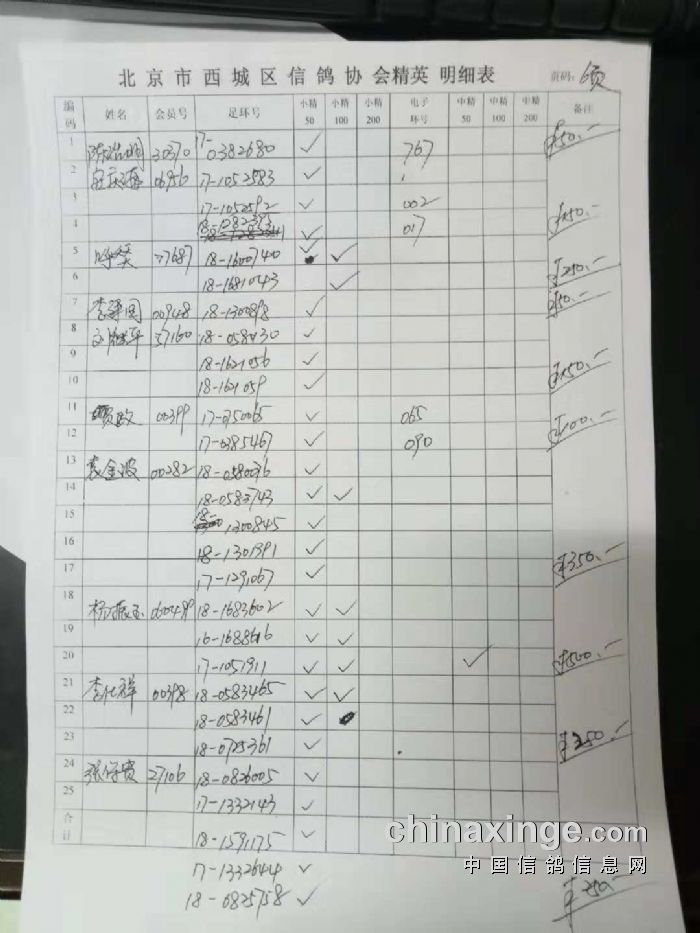 北京市西城区信鸽协会精英 明细表
页码：6页
编码 姓名 会员号 足环号 小精50 小精100 小精200 电子环号 中精50 中精100 中精200 备注
1 30370 17-0382680 ✓ 767 ¥50.-
2 06956 17-1052583 ✓
3 17-1052592 ✓ 002
4 ✓ 017 ¥150.-
5 37687 18-1600740 ✓ ✓
6 18-1681043 ✓ ¥250.-
7 00948 18-1300898 ✓ ¥50.-
8 37160 18-0584130 ✓
9 18-1621056 ✓
10 18-1621059 ✓ ¥150.-
11 00399 17-0350065 ✓ 065
12 17-0385467 ✓ 090 ¥100.-
13 袁金波 00282 18-0580036 ✓
14 18-0583743 ✓ ✓
15 1300845 ✓
16 18-1301991 ✓
17 17-1291067 ✓ ¥350.-
18 杨振玉 18-1683602 ✓ ✓
19 16-1688616 ✓ ✓
20 17-1051911 ✓ ✓ ✓ ¥500.-
21 李仕祥 00398 18-0583465 ✓ ✓
22 18-0583461 ✓
23 18-0725361 ✓ ¥250.-
24 张保贵 27106 18-0826005 ✓
25 17-1332143 ✓
合计 18-1591175 ✓
17-1332644 ✓
18-0825758 ✓ ¥250.-
chinaxinge.com
中国信鸽信息网